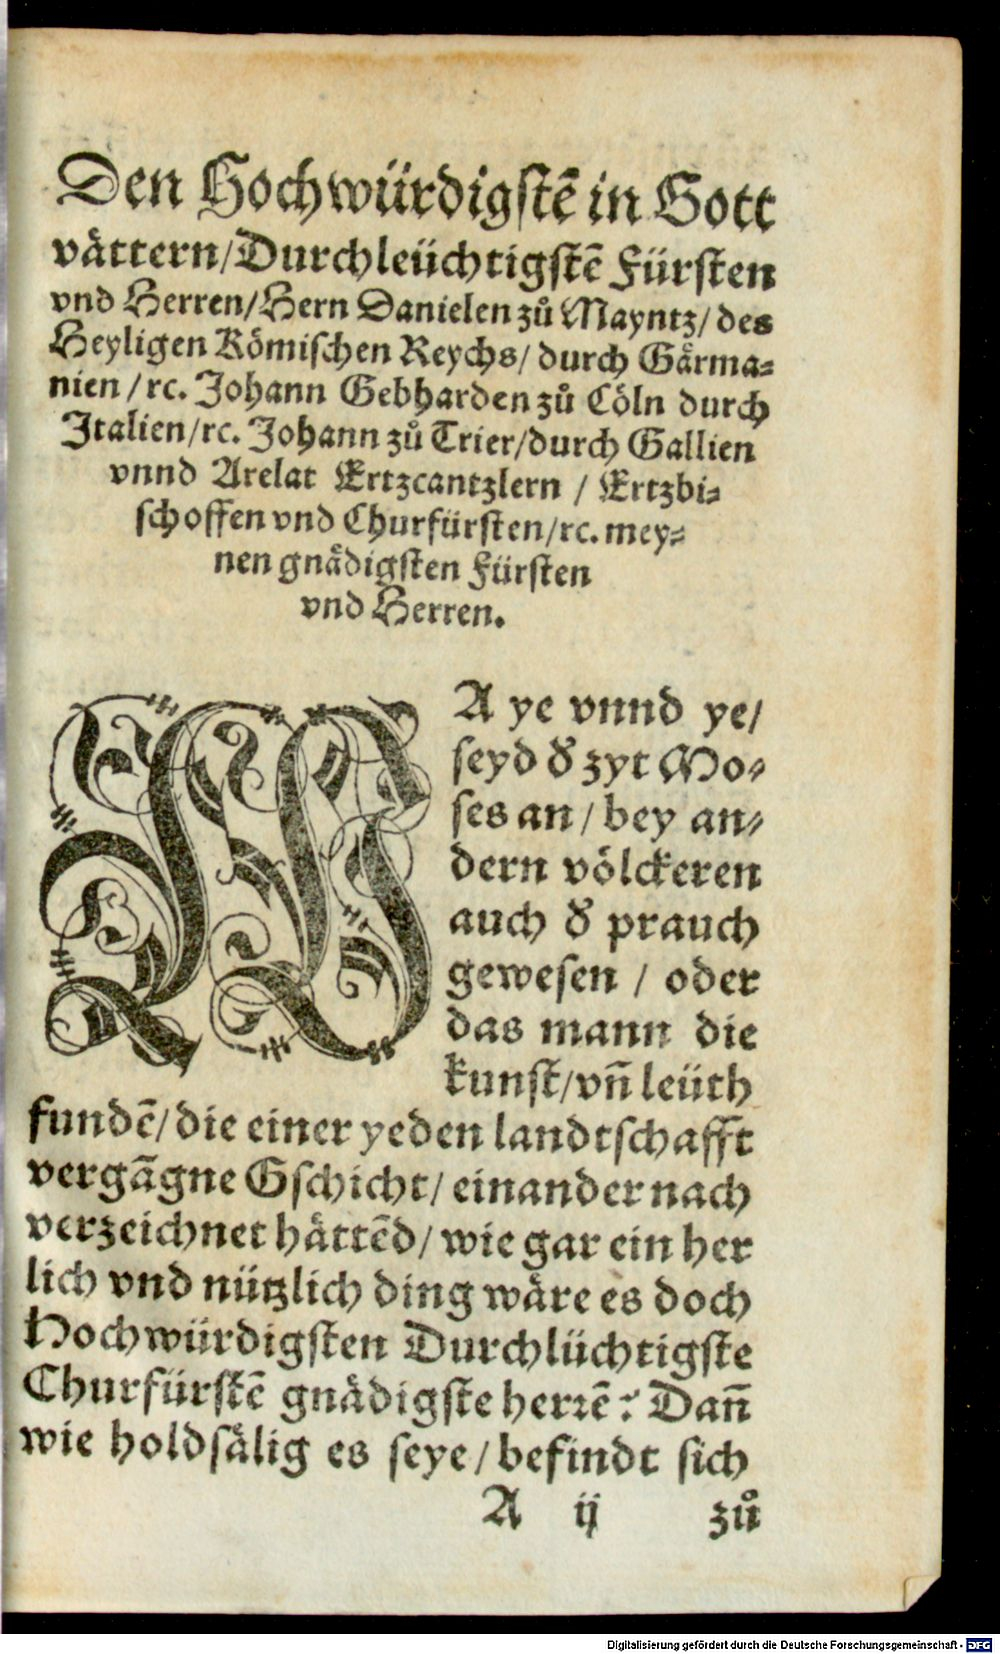 Den Hochwürdigstē in Gott
vättern/Durchleüchtigstē Fürsten
vnd Herren/Hern Danielen zů Mayntz/ des
Heyligen Römischen Reychs/ durch Gärma⸗
nien /ꝛc. Johann Gebharden zů Cöln durch
Italien/ꝛc. Johann zů Trier/durch Gallien
vnnd Arelat Ertzcantzlern / Ertzbi⸗
schoffen vnd Churfürsten/ꝛc. mey⸗
nen gnädigsten Fürsten
vnd Herren.
WA ye vnnd ye/
seyd d' zyt Mo⸗
ses an / bey an⸗
dern völckeren
auch d' prauch
gewesen / oder
das mann die
kunst/vn̄ leüth
fundē/die einer yeden landtschafft
vergāgne Gschicht/ einander nach
verzeichnet hättēd/ wie gar ein her
lich vnd nützlich ding wäre es doch
Hochwürdigsten Durchlüchtigste
Churfürstē gnädigste herꝛē? Dan̄
wie holdsälig es seye / befindt sich
A ij zů
Digitalisierung gefördert durch die Deutsche Forschungsgemeinschaft - DFG